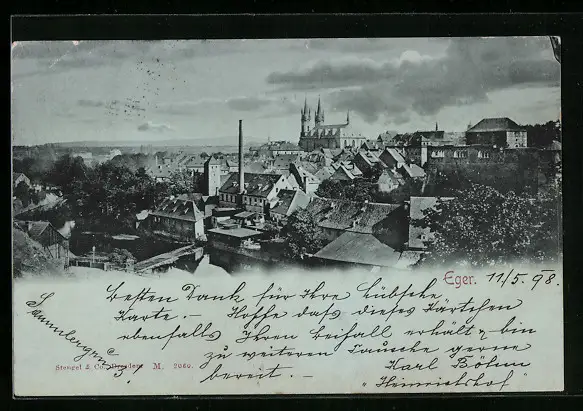 Eger. 11/5. 98.
besten Dank für Ihre hübsche
Karte. — Hoffe daß dieses Kärtchen
ebenfalls Ihren Beifall erhält & bin
zu weiteren Tausche gerne
bereit. —
Karl Böhm
"Heinrichshof"
Stengel & Co., Dresden M. 2060.